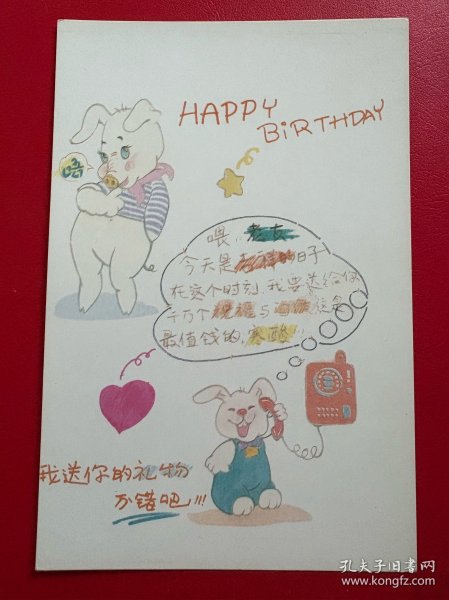 HAPPY
BiRTHDAY
唔
喂,老友
今天是 的日子
在这个时刻,我要送给你
千万个祝福与
最值钱的,寒酸...
我送你的礼物
不错吧!!!
孔夫子旧书网
www.kongfz.com